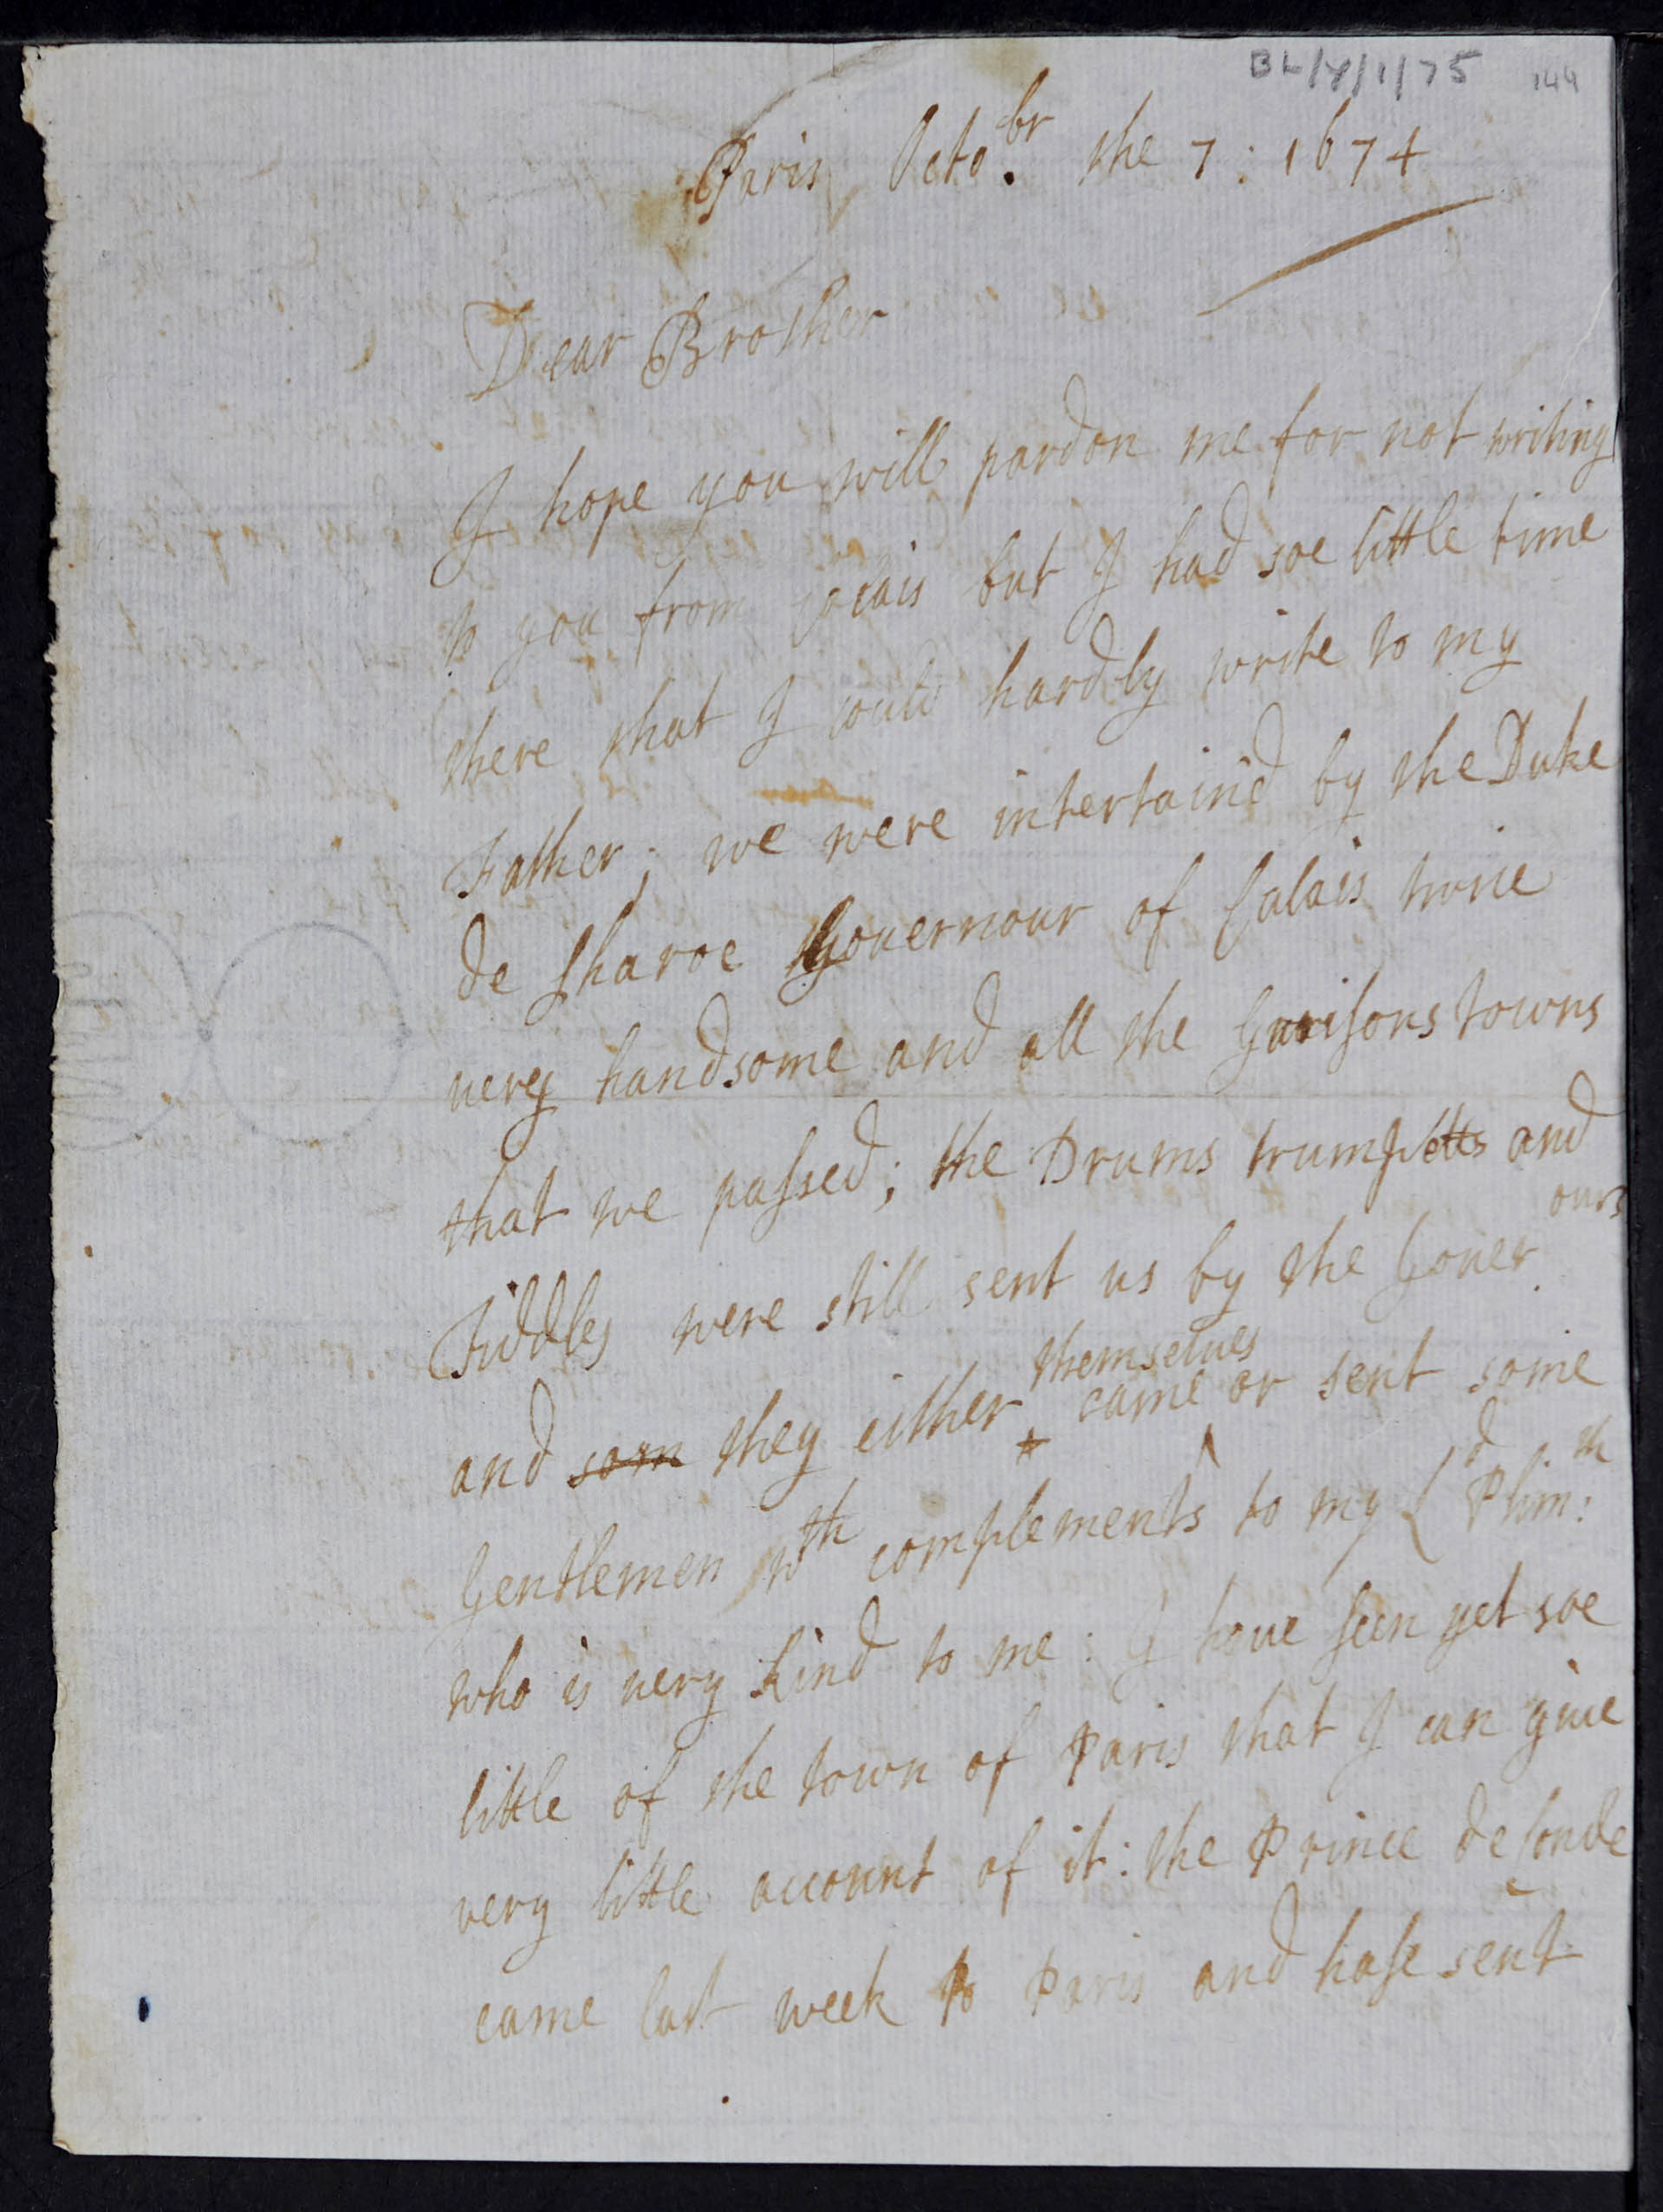 BL/Y/1/75 144
Paris Octo.br the 7 : 1674
Dear Brother
I hope you will pardon me for not writing
to you from Calais but I had soe little time
there that I could hardly write to my
Father; we were intertaind by the Duke
de Sharoe Gouernour of Calais twice
uery handsome and all the Garisons towns
that we passed; the Drums trumpetts and
Fiddles were still sent us by the Gouer ours
and som they either themselues came or sent some
Gentlemen wth complements to my Ld Plim:th
who is uery kind to me : I haue seen yet soe
little of the town of Paris that I can giue
very little account of it: the Prince de Conde
came last week to Paris and hase sent